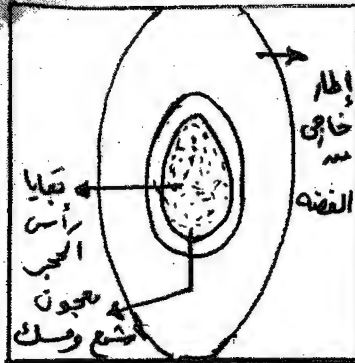 إطار
خارجى
من
الفضه
بقايا
رأس
الحجر
معجون
الشمع ومسك